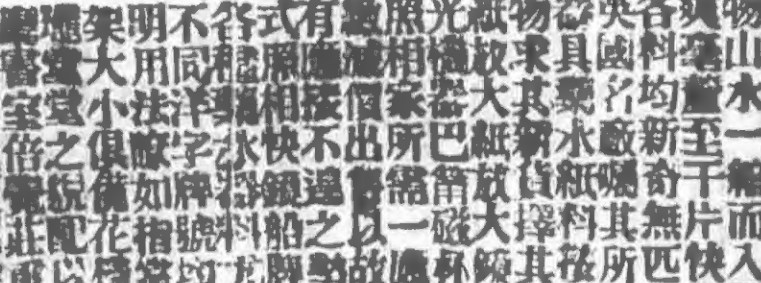 物山水一縮而入
爽毫釐至千片快
各料均新奇無匹
英國名廠囑其所
器具藥水紙料發
物求其新貨擇其
紙放大紙放大鏡
光機器巴筲磁杯
照相家所需一應
減價出售以故
有應接不遑之勢
式照相快鏡船牌
各樣藥水料尤
不同洋字牌號均
明用法如招
架大小俱備花樣
瓏堂之貌配以
室倍莊